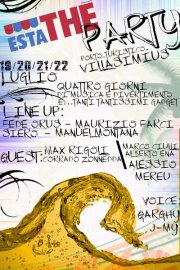 ESTATHE
PARTY
PORTO TURISTICO
VILLASIMIUS
19/20/21/22
LUGLIO
QUATTRO GIORNI
DI MUSICA E DIVERTIMENTO
E... TANTI TANTISSIMI GADGET
LINE UP:
FEDE ORUS - MAURIZIO FARCI
SIERO - MANUEL MONTANA
GUEST: MAX RIGOLI
CORRADO ZONNEDDA
MARCO
ALBERTO ENA
ALESSIO
MEREU
VOICE:
GARGHU
J-MY